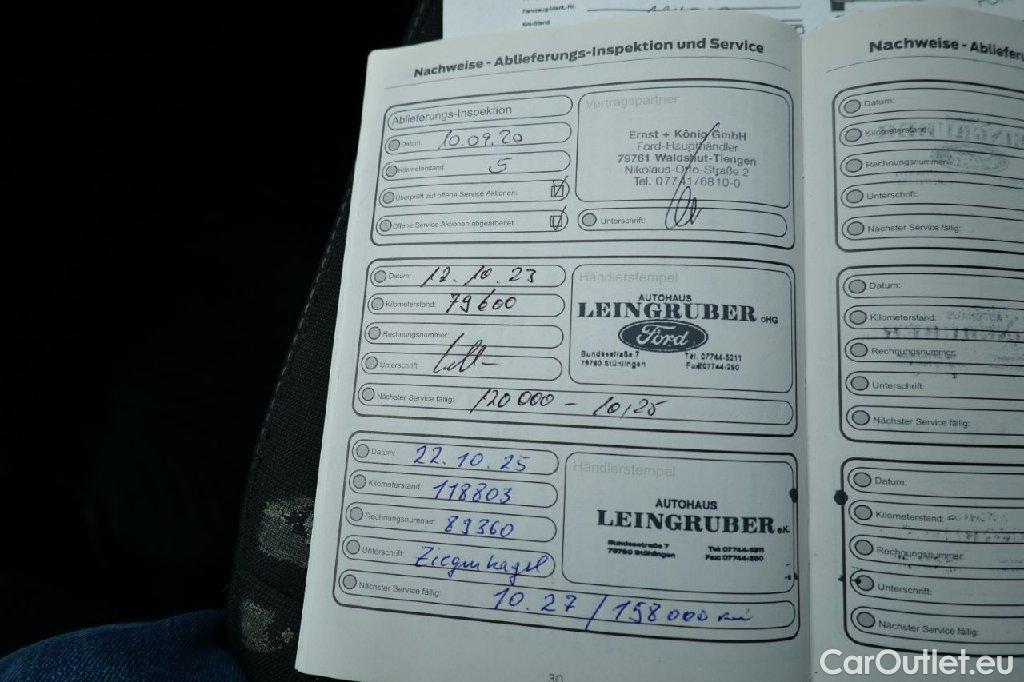 Fahrzeug-Ident.-Nr.
Km-Stand
Nachweise - Ablieferungs-Inspektion und Service
Ablieferungs-Inspektion
Datum: 10.09.20
Kilometerstand: 5
Überprüft auf offene Service Aktionen:
Offene Service Aktionen abgearbeitet:
Vertragspartner
Ernst + König GmbH
Ford-Haupthändler
79761 Waldshut-Tiengen
Nikolaus-Otto-Straße 2
Tel. 07741/6810-0
Unterschrift:
Datum: 12.10.23
Kilometerstand: 79600
Rechnungsnummer:
Unterschrift:
Nächster Service fällig: 120 000 - 10,25
Händlerstempel
AUTOHAUS
LEINGRUBER OHG
Ford
Bundesstraße 7 Tel. 07744-5211
79780 Stühlingen Fax: 07744-290
Datum: 22.10.25
Kilometerstand: 118803
Rechnungsnummer: 89360
Unterschrift:
Nächster Service fällig: 10.27 / 158 000 km
Händlerstempel
AUTOHAUS
LEINGRUBER e.K.
Bundesstraße 7 Tel: 07744-5211
79780 Stühlingen
30
Nachweise - Ablieferu
Datum:
Kilometerstand:
Rechnungsnummer:
Unterschrift:
Nächster Service fällig:
Datum:
Kilometerstand:
Rechnungsnummer:
Unterschrift:
Nächster Service fällig:
Datum:
Kilometerstand:
Rechnungsnummer:
Unterschrift:
Nächster Service fällig:
CarOutlet.eu